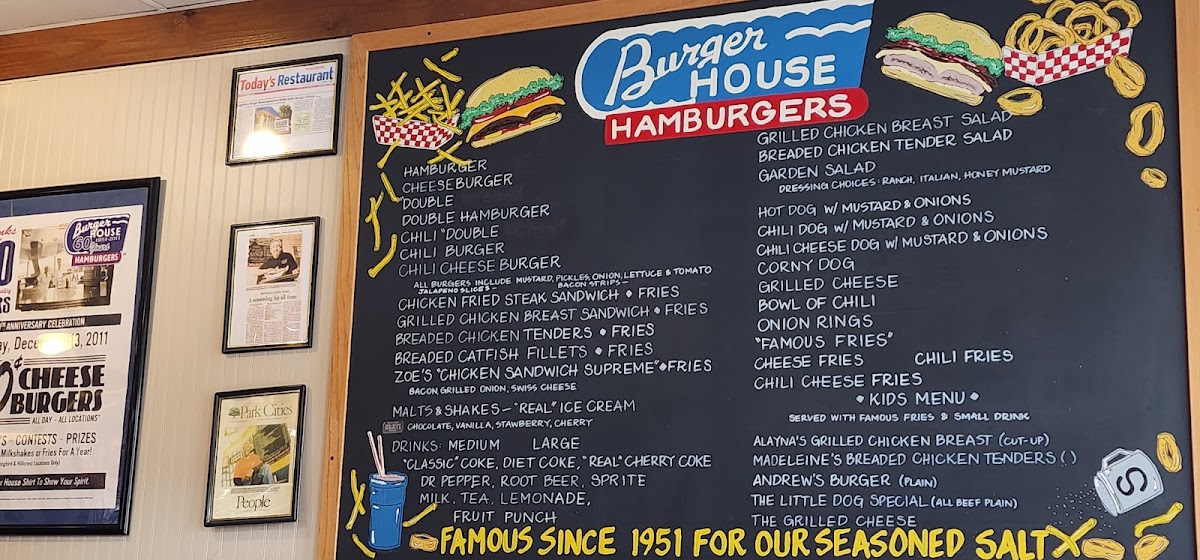 Today's Restaurant
A seasoning for all tastes
Park Cities
People
Burger
HOUSE
1951-2011
60 Years
HAMBURGERS
ANNIVERSARY CELEBRATION
3, 2011
CHEESE
BURGERS
ALL DAY - ALL LOCATIONS
CONTESTS - PRIZES
Milkshakes or Fries For A Year!
House Shirt To Show Your Spirit.
Burger
HOUSE
HAMBURGERS
HAMBURGER
CHEESEBURGER
"DOUBLE
DOUBLE HAMBURGER
CHILI "DOUBLE
CHILI BURGER
CHILI CHEESE BURGER
ALL BURGERS INCLUDE MUSTARD, PICKLES, ONION, LETTUCE & TOMATO
JALAPENO SLICES - BACON STRIPS -
CHICKEN FRIED STEAK SANDWICH • FRIES
GRILLED CHICKEN BREAST SANDWICH • FRIES
BREADED CHICKEN TENDERS • FRIES
BREADED CATFISH FILLETS • FRIES
ZOE'S "CHICKEN SANDWICH SUPREME" • FRIES
BACON, GRILLED ONION, SWISS CHEESE
MALTS & SHAKES - "REAL" ICE CREAM
CHOCOLATE, VANILLA, STAWBERRY, CHERRY
DRINKS: MEDIUM LARGE
"CLASSIC" COKE, DIET COKE, "REAL" CHERRY COKE
DR PEPPER, ROOT BEER, SPRITE
MILK, TEA, LEMONADE,
FRUIT PUNCH
GRILLED CHICKEN BREAST SALAD
BREADED CHICKEN TENDER SALAD
GARDEN SALAD
DRESSING CHOICES: RANCH, ITALIAN, HONEY MUSTARD
HOT DOG W/ MUSTARD & ONIONS
CHILI DOG W/ MUSTARD & ONIONS
CHILI CHEESE DOG W/ MUSTARD & ONIONS
CORNY DOG
GRILLED CHEESE
BOWL OF CHILI
ONION RINGS
"FAMOUS FRIES"
CHEESE FRIES CHILI FRIES
CHILI CHEESE FRIES
• KIDS MENU •
SERVED WITH FAMOUS FRIES & SMALL DRINK
ALAYNA'S GRILLED CHICKEN BREAST (CUT-UP)
MADELEINE'S BREADED CHICKEN TENDERS ( )
ANDREW'S BURGER (PLAIN)
THE LITTLE DOG SPECIAL (ALL BEEF PLAIN)
THE GRILLED CHEESE
S
FAMOUS SINCE 1951 FOR OUR SEASONED SALT